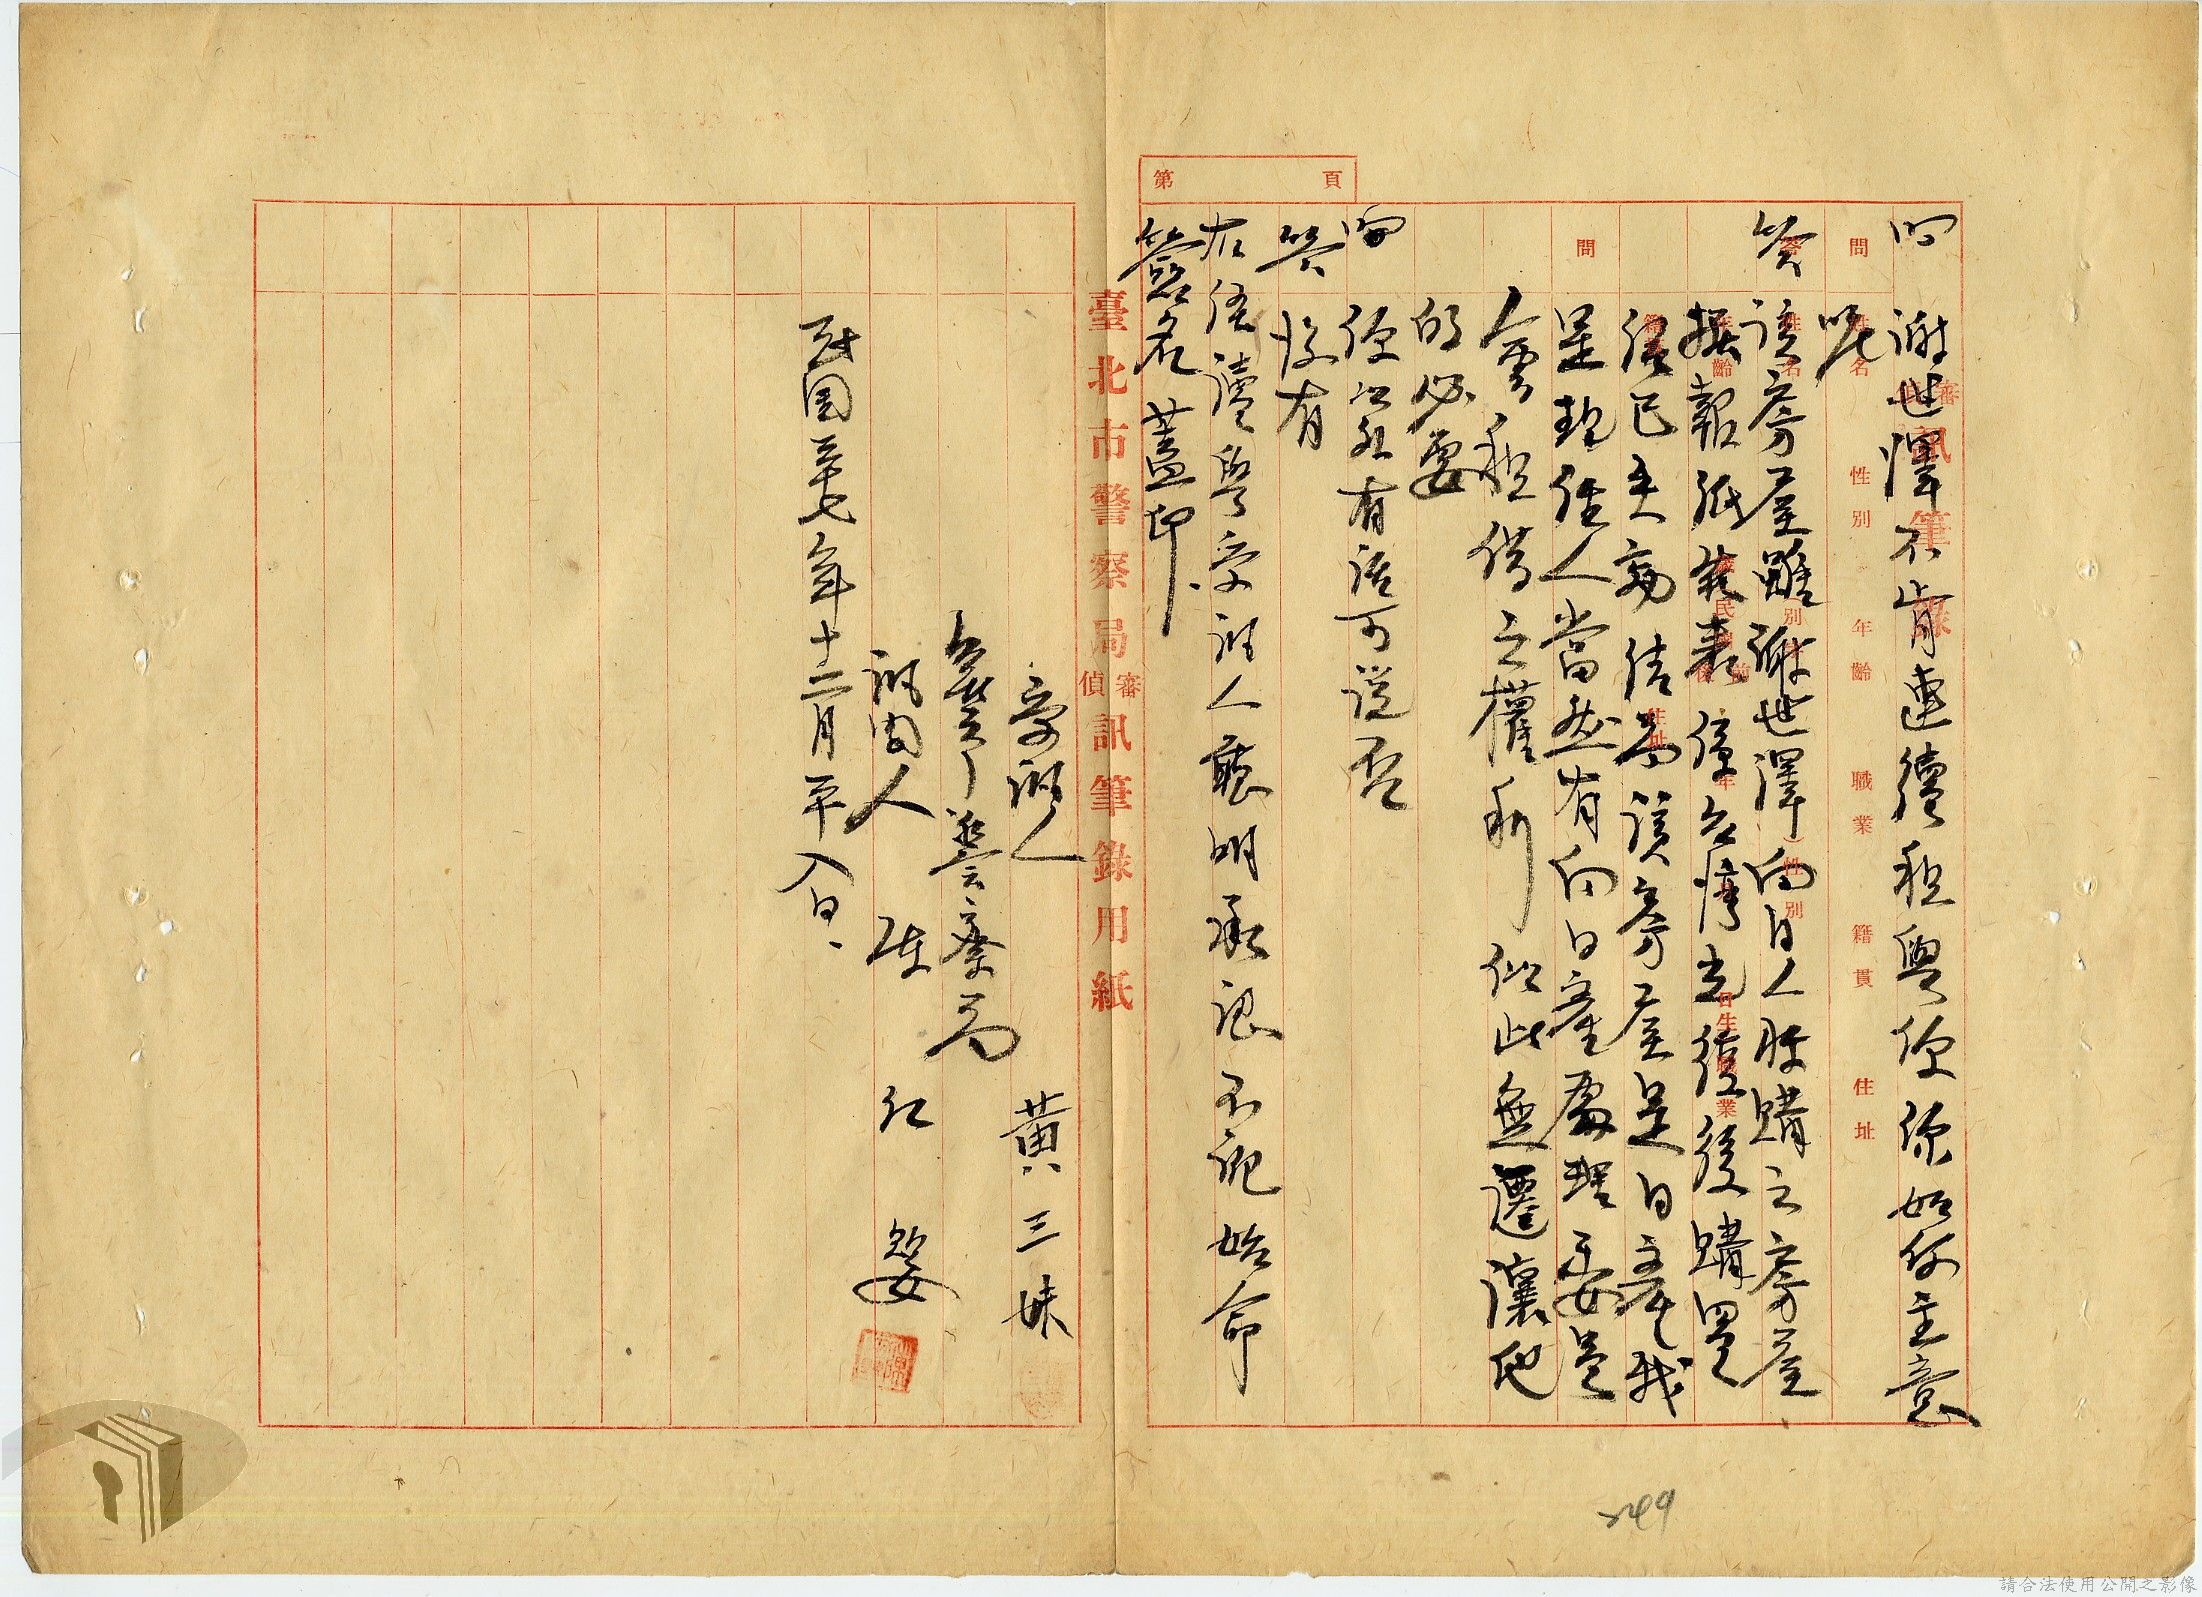 第 頁
審訊筆錄
問 謝世澤不肯連續租與你你如何主意
呢
問 姓名 性別 年齡 職業 籍貫 住址
答 該房屋雖謝世澤向日人所購之房屋
據報紙發表須台灣光復後購置
經已失効結局該房屋是日產我
是現住人當然有向日產處理委員
會租借之權利似此無遷讓他
的必要
問 你以外有話可說否
答 沒有
右經讀與受訊人聽明承認不訛始命
簽名蓋印
臺北市警察局審訊筆錄用紙
偵
受訊人 黃三妹
臺北市警察局
訊問人 張紅
民國三十七年十二月 日
249
請合法使用公開之影像